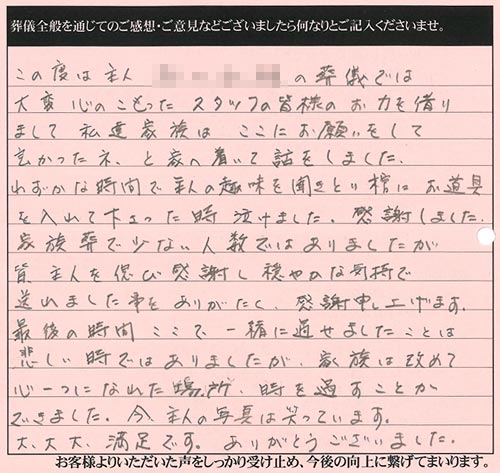 葬儀全般を通じてのご感想・ご意見などございましたら何なりとご記入くださいませ。
この度は主人 の葬儀では
大変心のこもった スタッフの皆様のお力を借り
まして 私達家族は ここにお願いをして
良かったネ、と家へ着いて話をしました。
わずかな時間で主人の趣味を聞きとり棺にお道具
を入れて下さった時 泣けました。感謝しました。
家族葬で少ない人数ではありましたが
皆 主人を偲び感謝し穏やかな気持で
送れました事をありがたく、感謝申し上げます。
最後の時間 ここで一緒に過せましたことは
悲しい時ではありましたが、家族は改めて
心一つになれた場所、時を過すことが
できました。今、主人の写真は笑っています。
大、大、大、満足です。ありがとうございました。
お客様よりいただいた声をしっかり受け止め、今後の向上に繋げてまいります。